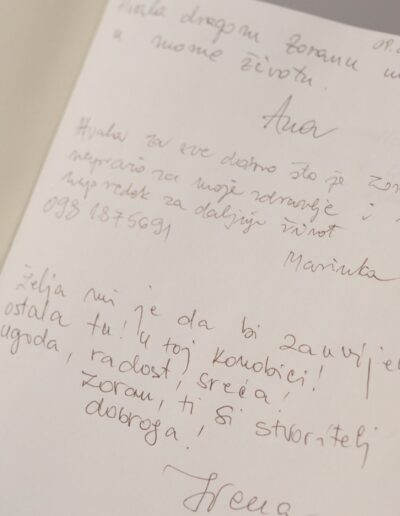 Hvala dragom Zoranu
u mome životu.
09.
Ana
Hvala za sve dobro što je
napravio za moje zdravlje i
napredak za daljnji život
098 1875691
Marinka
Želja mi je da bi zauvije
ostala tu! U toj konobici!
ugoda, radost, sreća!
Zoran, ti si stvoritelj
dobroga!
Irena